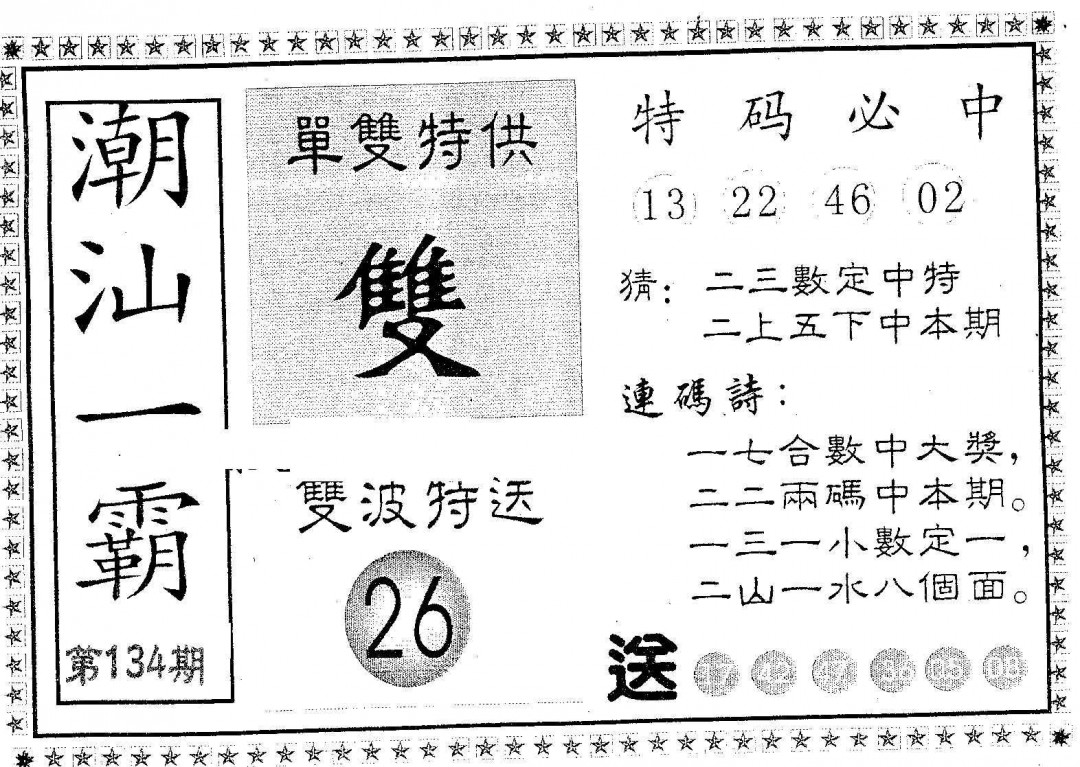 潮汕一霸
第134期
單雙特供
雙
雙波特送
26
特码必中
13 22 46 02
猜：二三數定中特
二上五下中本期
連碼詩：
一七合數中大獎，
二二兩碼中本期。
一三一小數定一，
二山一水八個面。
送 42 47 36 05 08